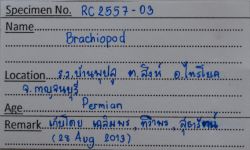 Specimen No. RC2557-03
Name
Brachiopod
Location ร.ร.บ้านพุปลู ต.สิงห์ อ.ไทรโยค
จ.กาญจนบุรี
Age Permian
Remark เก็บโดย เฉลิมพร, ทิวาพร, สุดารัตน์
(28 Aug 2013)